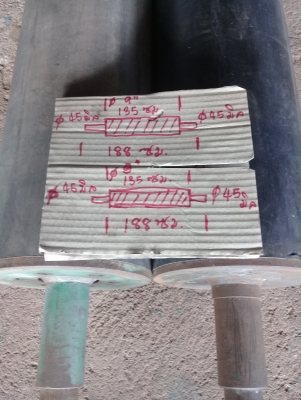 ø 9"
135 ซม.
ø 45 มิล ø 45 มิล
188 ซม.
ø 8"
135 ซม.
ø 45 มิล ø 45 มิล
188 ซม.